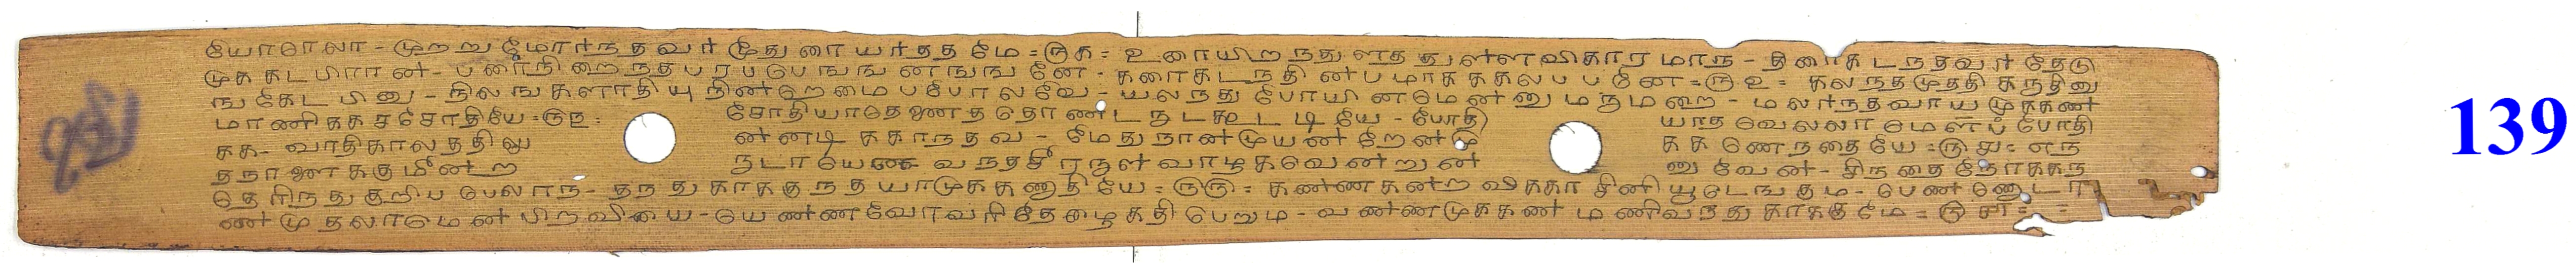 யொாலா - முறறு மோர்ந தவர் முதுரை யர்தத மே = ருக = உரையிறநதுளத துள்ளவிகார மாந - திரைகடநதவர் தேடு
முககடபிரான் - பரைநிறைநத பரபபெஙஙனஙஙனே - கரைகடநதின்பமாகககலபபனே = ருஉ = கலநதமுததி கநதினு
ஙகேடபினு - நிலஙகளாதியு நின்றெமைபபோலவே - யலநது போயினமென்னு மருமறை - மலர்நதவாயமுககண்
மாணிககசசோதியே = ருங = சோதியாதெணத தொண்டருடகூடடியே - போதி யாத வெலலா மெளபபோதி
கக - வாதிகாலததிலு ன்னடி ககாநதவ - மேது நான்முயன்றேன்மு ககணெநதையே = ருச = எந
தநாணககுமீன்ற நடாயெக வநதசீரருள்வாழகவென்றுன் னுவேன் - சிநதை நோககந
தெரிநது குறிபபெலாந - தநது காககுந தயாமுககணாதியே = ருரு = கண்ணகன்ற விககாசினியூடெஙகும - பெண்ணொடா
ண்முதலாமென் பிறவியை - யெண்ணவோவரிதேழைகதிபெறும - வண்ணமுககண் மணிவநது காககுமே = ருசா =
139